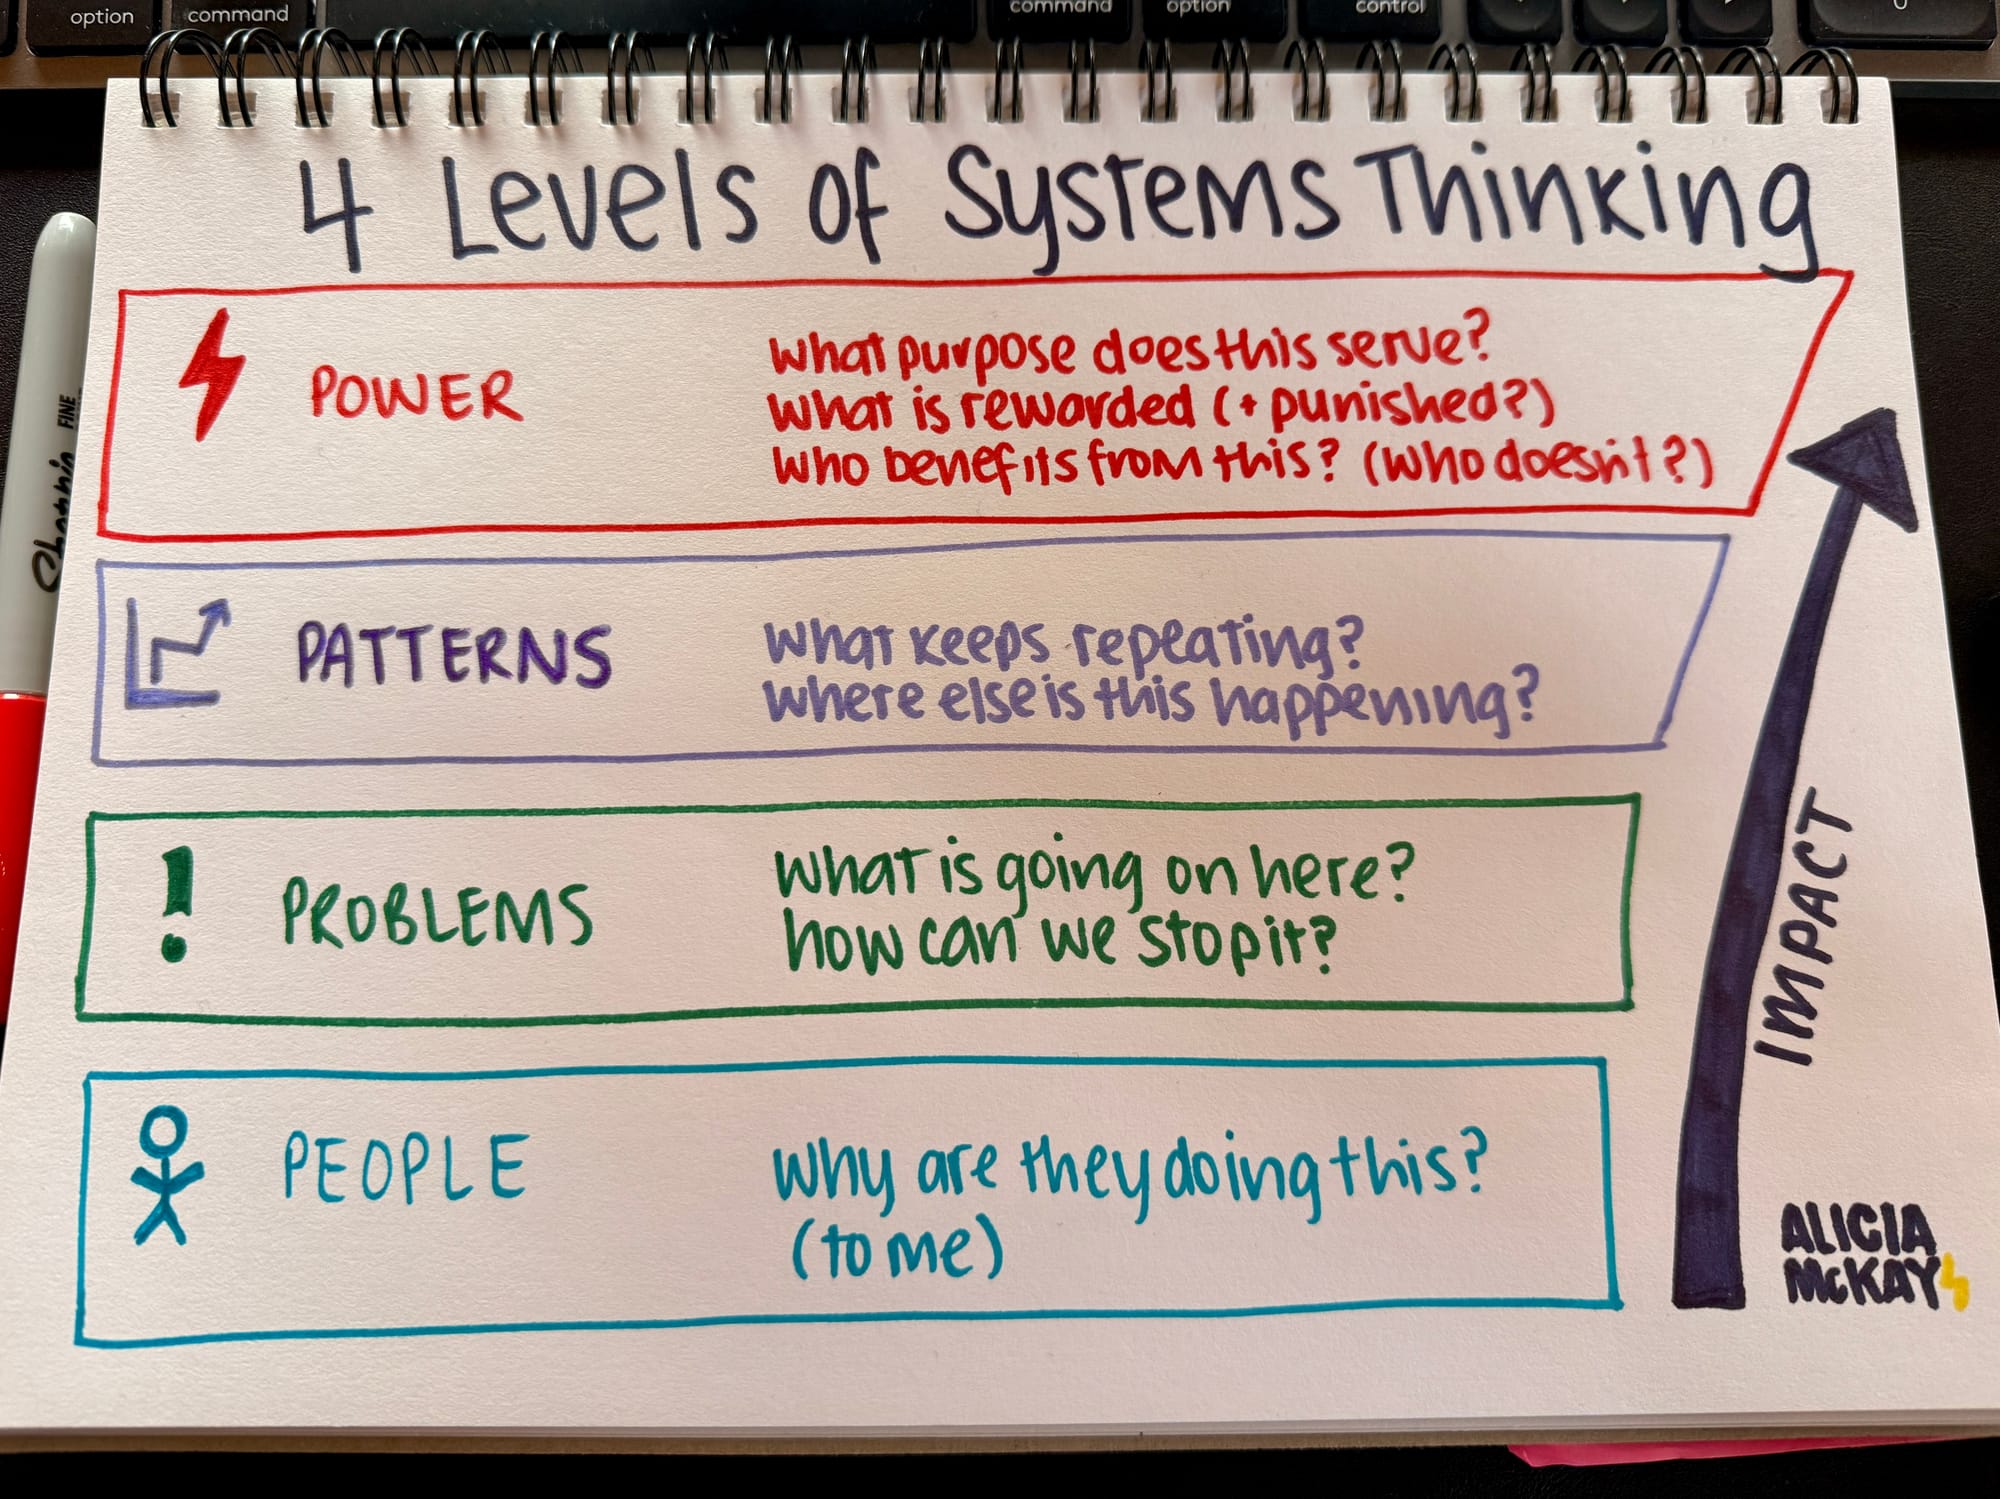 option
command
command
option
control
4 Levels of Systems Thinking
POWER
What purpose does this serve?
What is rewarded (+ punished?)
Who benefits from this? (Who doesn't?)
PATTERNS
What keeps repeating?
Where else is this happening?
PROBLEMS
What is going on here?
how can we stop it?
PEOPLE
Why are they doing this?
(to me)
IMPACT
ALICIA
McKAY
Sharpie
FINE